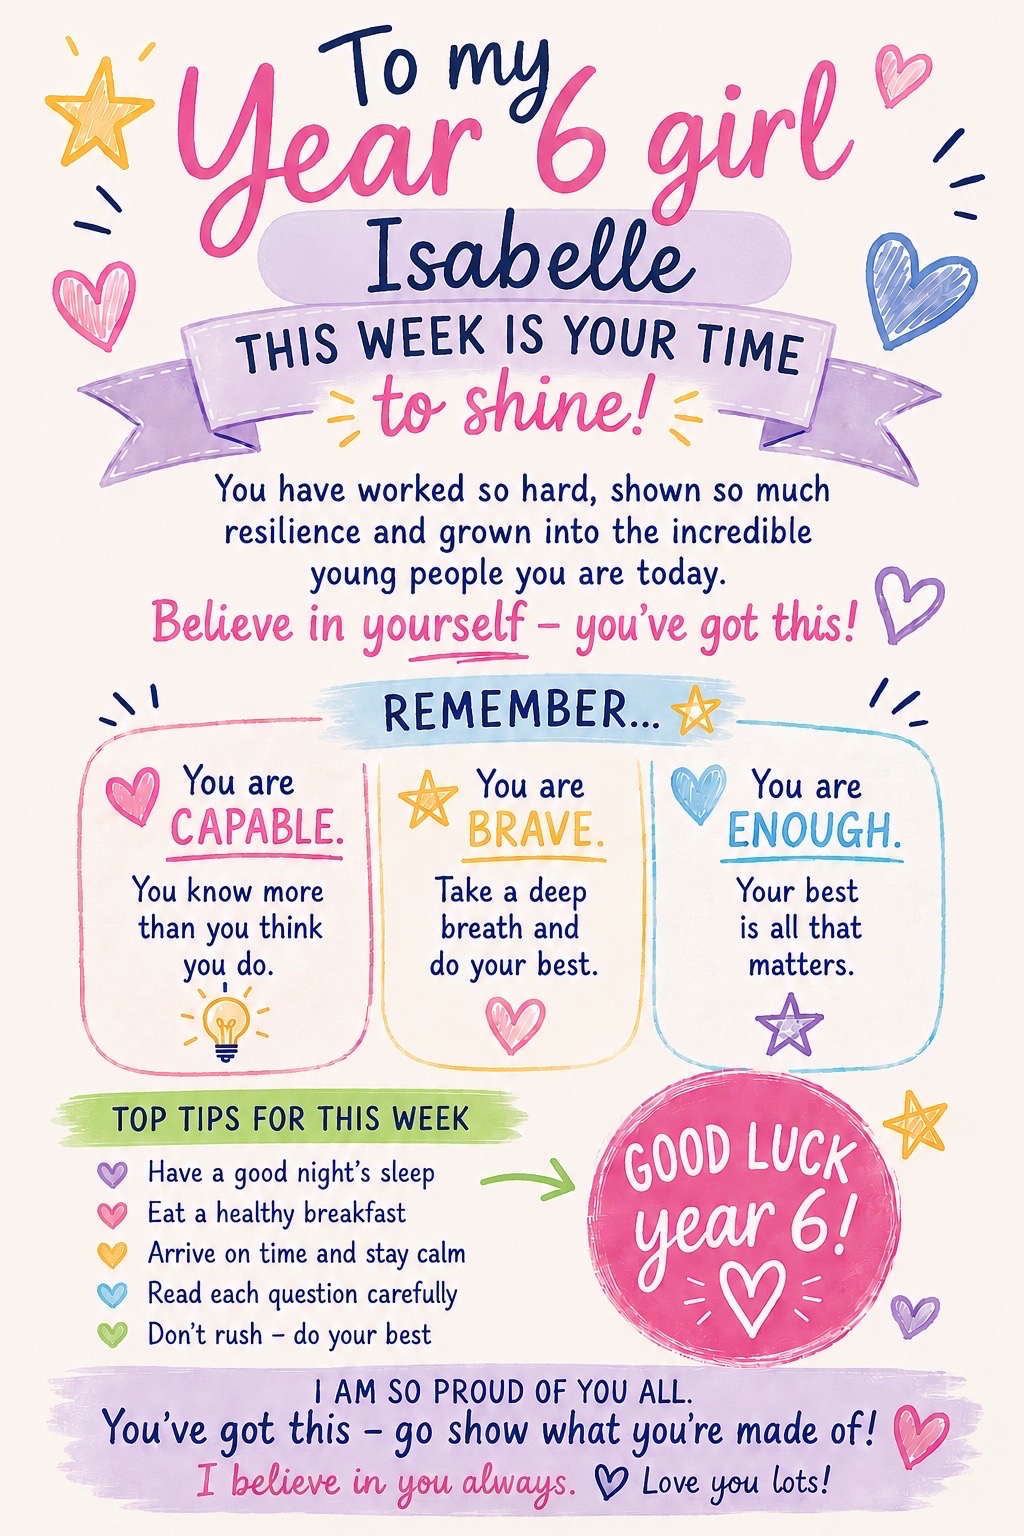 To my
Year 6 girl
Isabelle
THIS WEEK IS YOUR TIME
to shine!
You have worked so hard, shown so much
resilience and grown into the incredible
young people you are today.
Believe in yourself – you've got this!
REMEMBER...
You are
CAPABLE.
You know more
than you think
you do.
You are
BRAVE.
Take a deep
breath and
do your best.
You are
ENOUGH.
Your best
is all that
matters.
TOP TIPS FOR THIS WEEK
Have a good night's sleep
Eat a healthy breakfast
Arrive on time and stay calm
Read each question carefully
Don't rush – do your best
GOOD LUCK
year 6!
I AM SO PROUD OF YOU ALL.
You've got this – go show what you're made of!
I believe in you always. Love you lots!